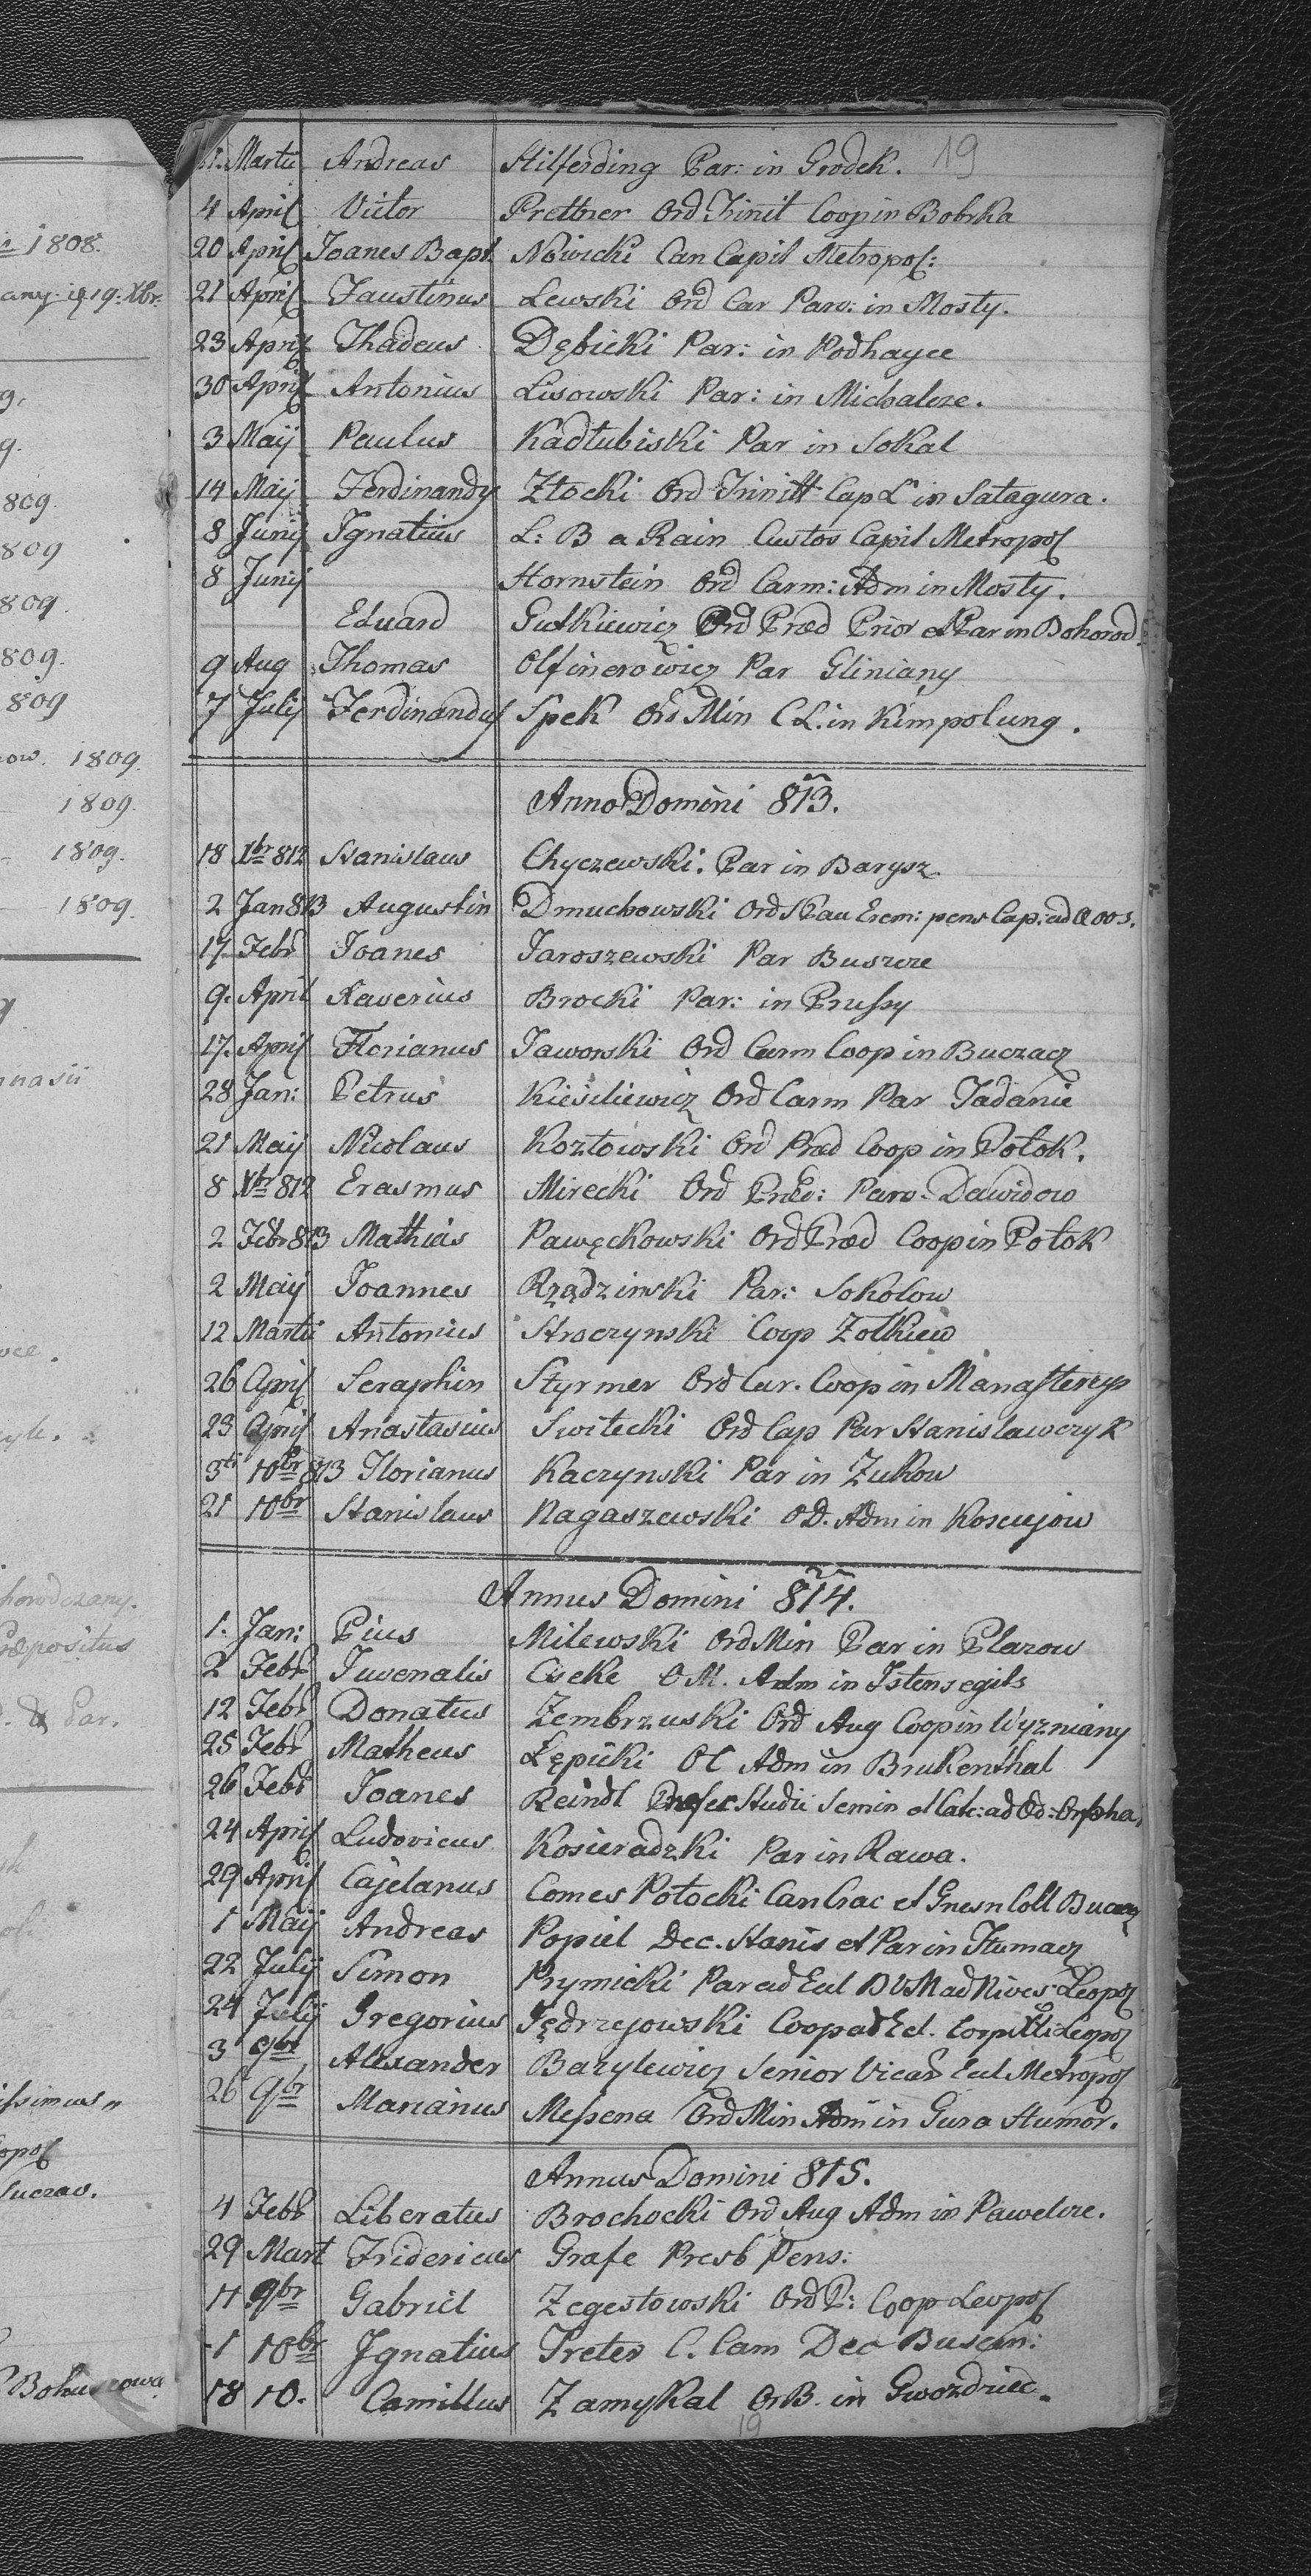 1808.
any 19: Xbr.
809
809
809
809.
809
1809.
1809.
1809.
1809.
horodczany.
Præpositus
Par.
issimus
19
Martii Andreas Hilferding Par: in Grodek.
4 April Victor Prettner Ord Trinit Coop in Bobrka
20 April Joanes Bapt Nowicki Can Capit Metropol:
21 April Faustinus Lewski Ord Car Paro: in Mosty.
23 April Thadeus Dębicki Par: in Podhayce
30 April Antonius Lisowski Par: in Michalcze.
3 Maij Paulus Kadłubiski Par in Sokal
14 Maij Ferdinandy Złocki Ord Trinitt Cap L in Satagura.
8 Junij Ignatius L: B a Rain Custos Capit Metropol
8 Junij Hornstein Ord Carm: Adm in Mosty.
Eduard Gutkiewicz Ord Præd Prior et Par in Bohorod
9 Aug Thomas Olfinerowicz Par Gliniany
7 Julij Ferdinandus Spek Ord Min C L. in Kimpolung.
Anno Domini 813.
18 Xbr 812 Stanislaus Chyczewski. Par in Barysz
2 Jan 813 Augustin Dmuchowski Ord S Pau Erem: pens Cap: ad
17. Febr Joanes Jaroszewski Par Buszcze
9. April Xaverius Brocki Par: in Prussy
17. April Florianus Jaworski Ord Carm Coop in Buczacz
28 Jan: Petrus Kieśiliewicz Ord Carm Par Jadanie
21 Maij Nicolaus Kozłowski Ord Præd Coop in Potok.
8 Xbr 812 Erasmus Mirecki Ord Præd: Paro: Dawidow
2 Febr 813 Mathias Pawęchowski Ord Præd Coop in Potok
2 Maij Joannes Rządzinski Par: Sokolow
12 Martii Antonius Stroczynski Coop Zołkiew
26 April Seraphin Styrmer Ord Car. Coop in Manasterzys
23 April Anastasius Switecki Ord Cap Par Stanislawczyk
3ti 10br 813 Florianus Kaczynski Par in Zukow
21 10br Stanislaus Nagaszewski O D. Adm in Kosciejow
Annus Domini 814.
1. Jan: Pius Milewski Ord Min Par in Plazow
2 Febr Juvenalis Cseke O M. Adm in Istensegits
12 Febr Donatus Zembrzuski Ord Aug Coop in Wyzniany
25 Febr Matheus Łępicki O C Adm in Brukenthal
26 Febr Joanes Reindl Prefec Studii Semin et Catc: ad Orpha,
24 April Ludovicus Kosieradzki Par in Rawa.
29 April Cajetanus Comes Potocki Can Crac et Gnesn Coll Buczacz
1 Maij Andreas Popiel Dec. Stanis et Par in Tłumacz
22 Julij Simon Prymicki Par ad Eccl B V M ad Nives Leopol
24 Julij Gregorius Jędrzejowski Coop ad Ecl. Corp Xti Leopol
3 9br Alexander Bazylewicz Senior Vicar Eccl Metropol
26 9br Marianus Messena Ord Min Adm in Gura Humor.
Annus Domini 815.
4 Febr Liberatus Brochocki Ord Aug Adm in Pawelcze.
29 Mart Fridericus Grafe Presb Pens:
11 9br Gabriel Zegestowski Ord P: Coop Leopol
1 10br Ignatius Treter C. Cam Dec Buscen:
18 10. Camillus Zamykal Or B. in Gwozdziec.
19